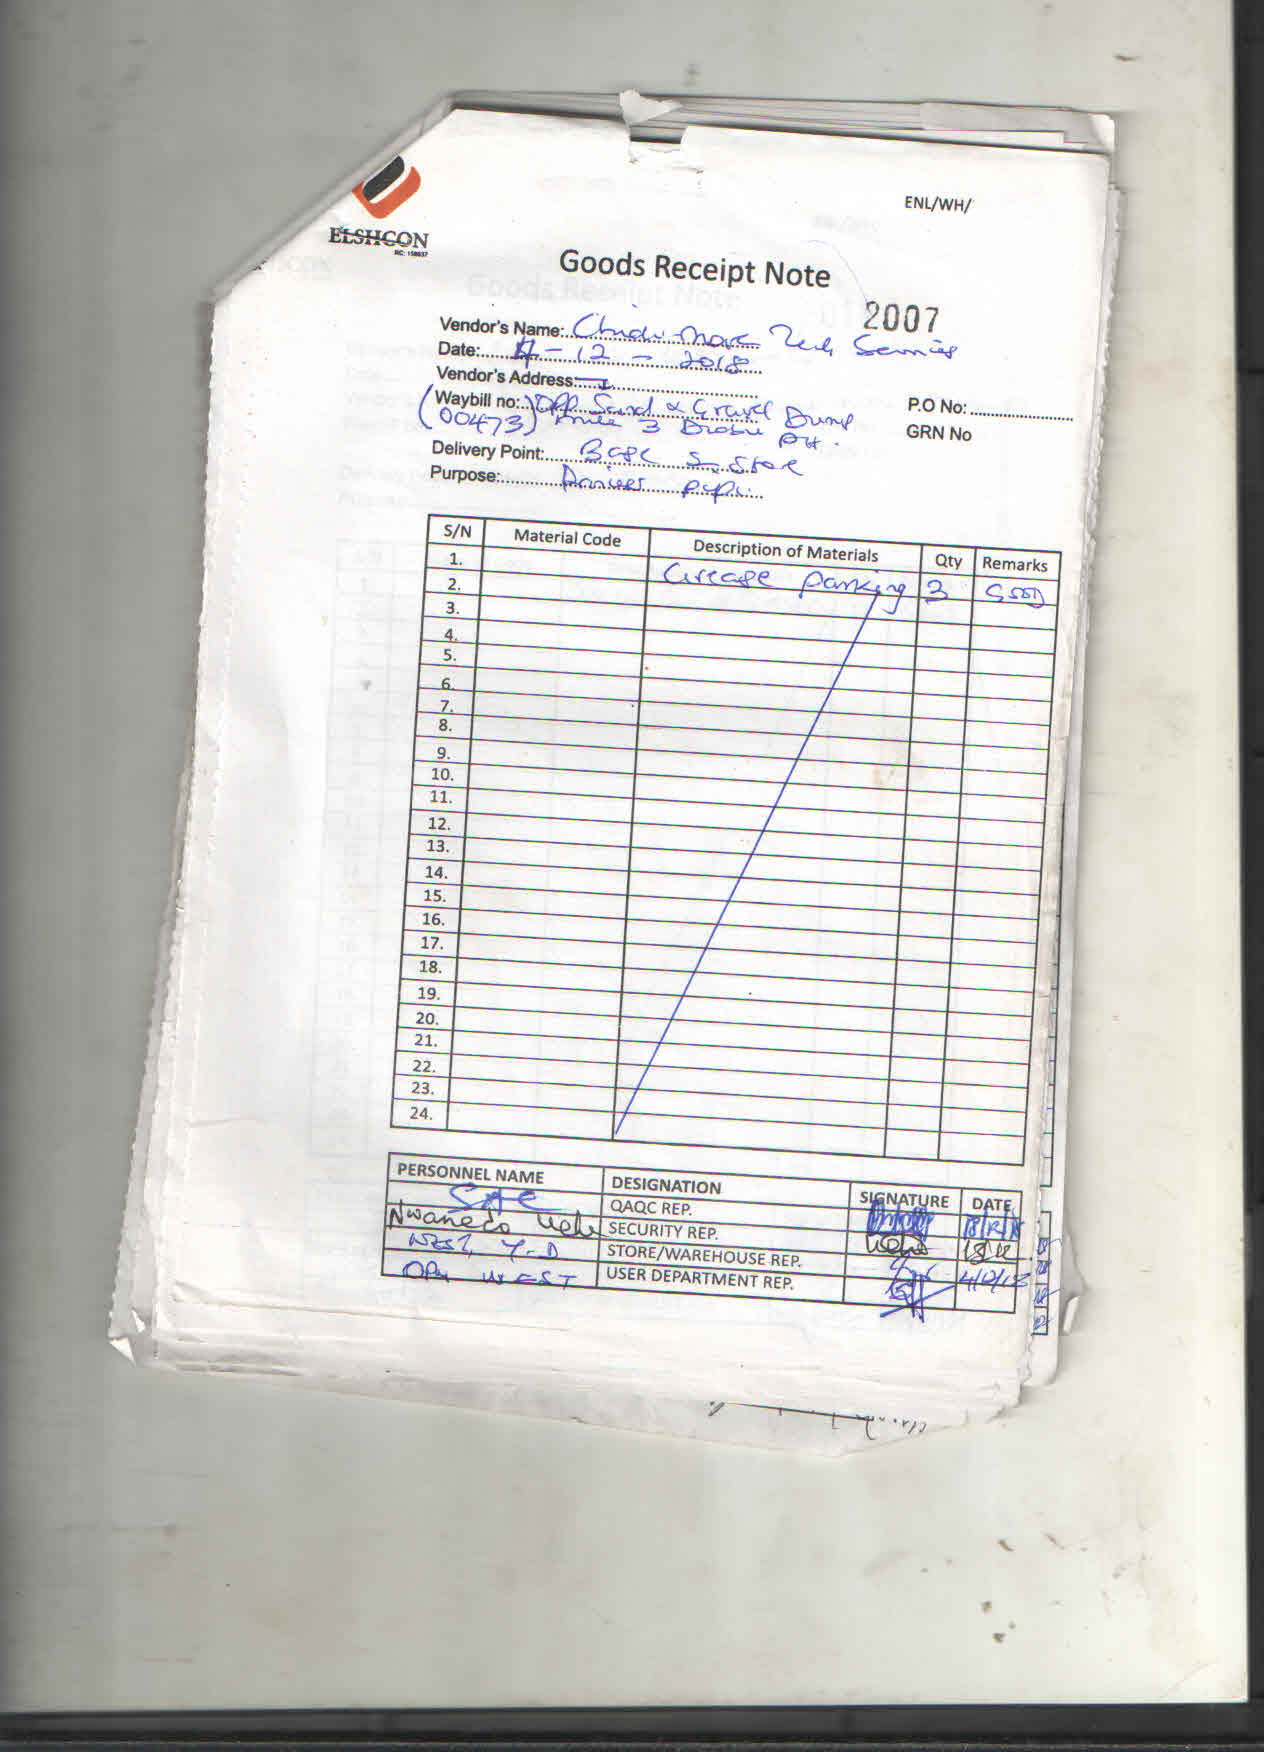 ENL/WH/
ELSHCON
RC: 158637
Goods Receipt Note
2007
Vendor's Name: Chidi-Mark Tech Services
Date: 4-12-2018
Vendor's Address:
Waybill no: Opp Sand & Gravel Dump
P.O No:
(00473) Mile 3 Diobu PH.
GRN No
Delivery Point: Base S. Store
Purpose:
S/N Material Code Description of Materials Qty Remarks
1. Grease parking 3 Good
2.
3.
4.
5.
6.
7.
8.
9.
10.
11.
12.
13.
14.
15.
16.
17.
18.
19.
20.
21.
22.
23.
24.
PERSONNEL NAME DESIGNATION SIGNATURE DATE
QAQC REP.
Nwaneto SECURITY REP.
West Y.D STORE/WAREHOUSE REP. 4/12/18
WEST USER DEPARTMENT REP.